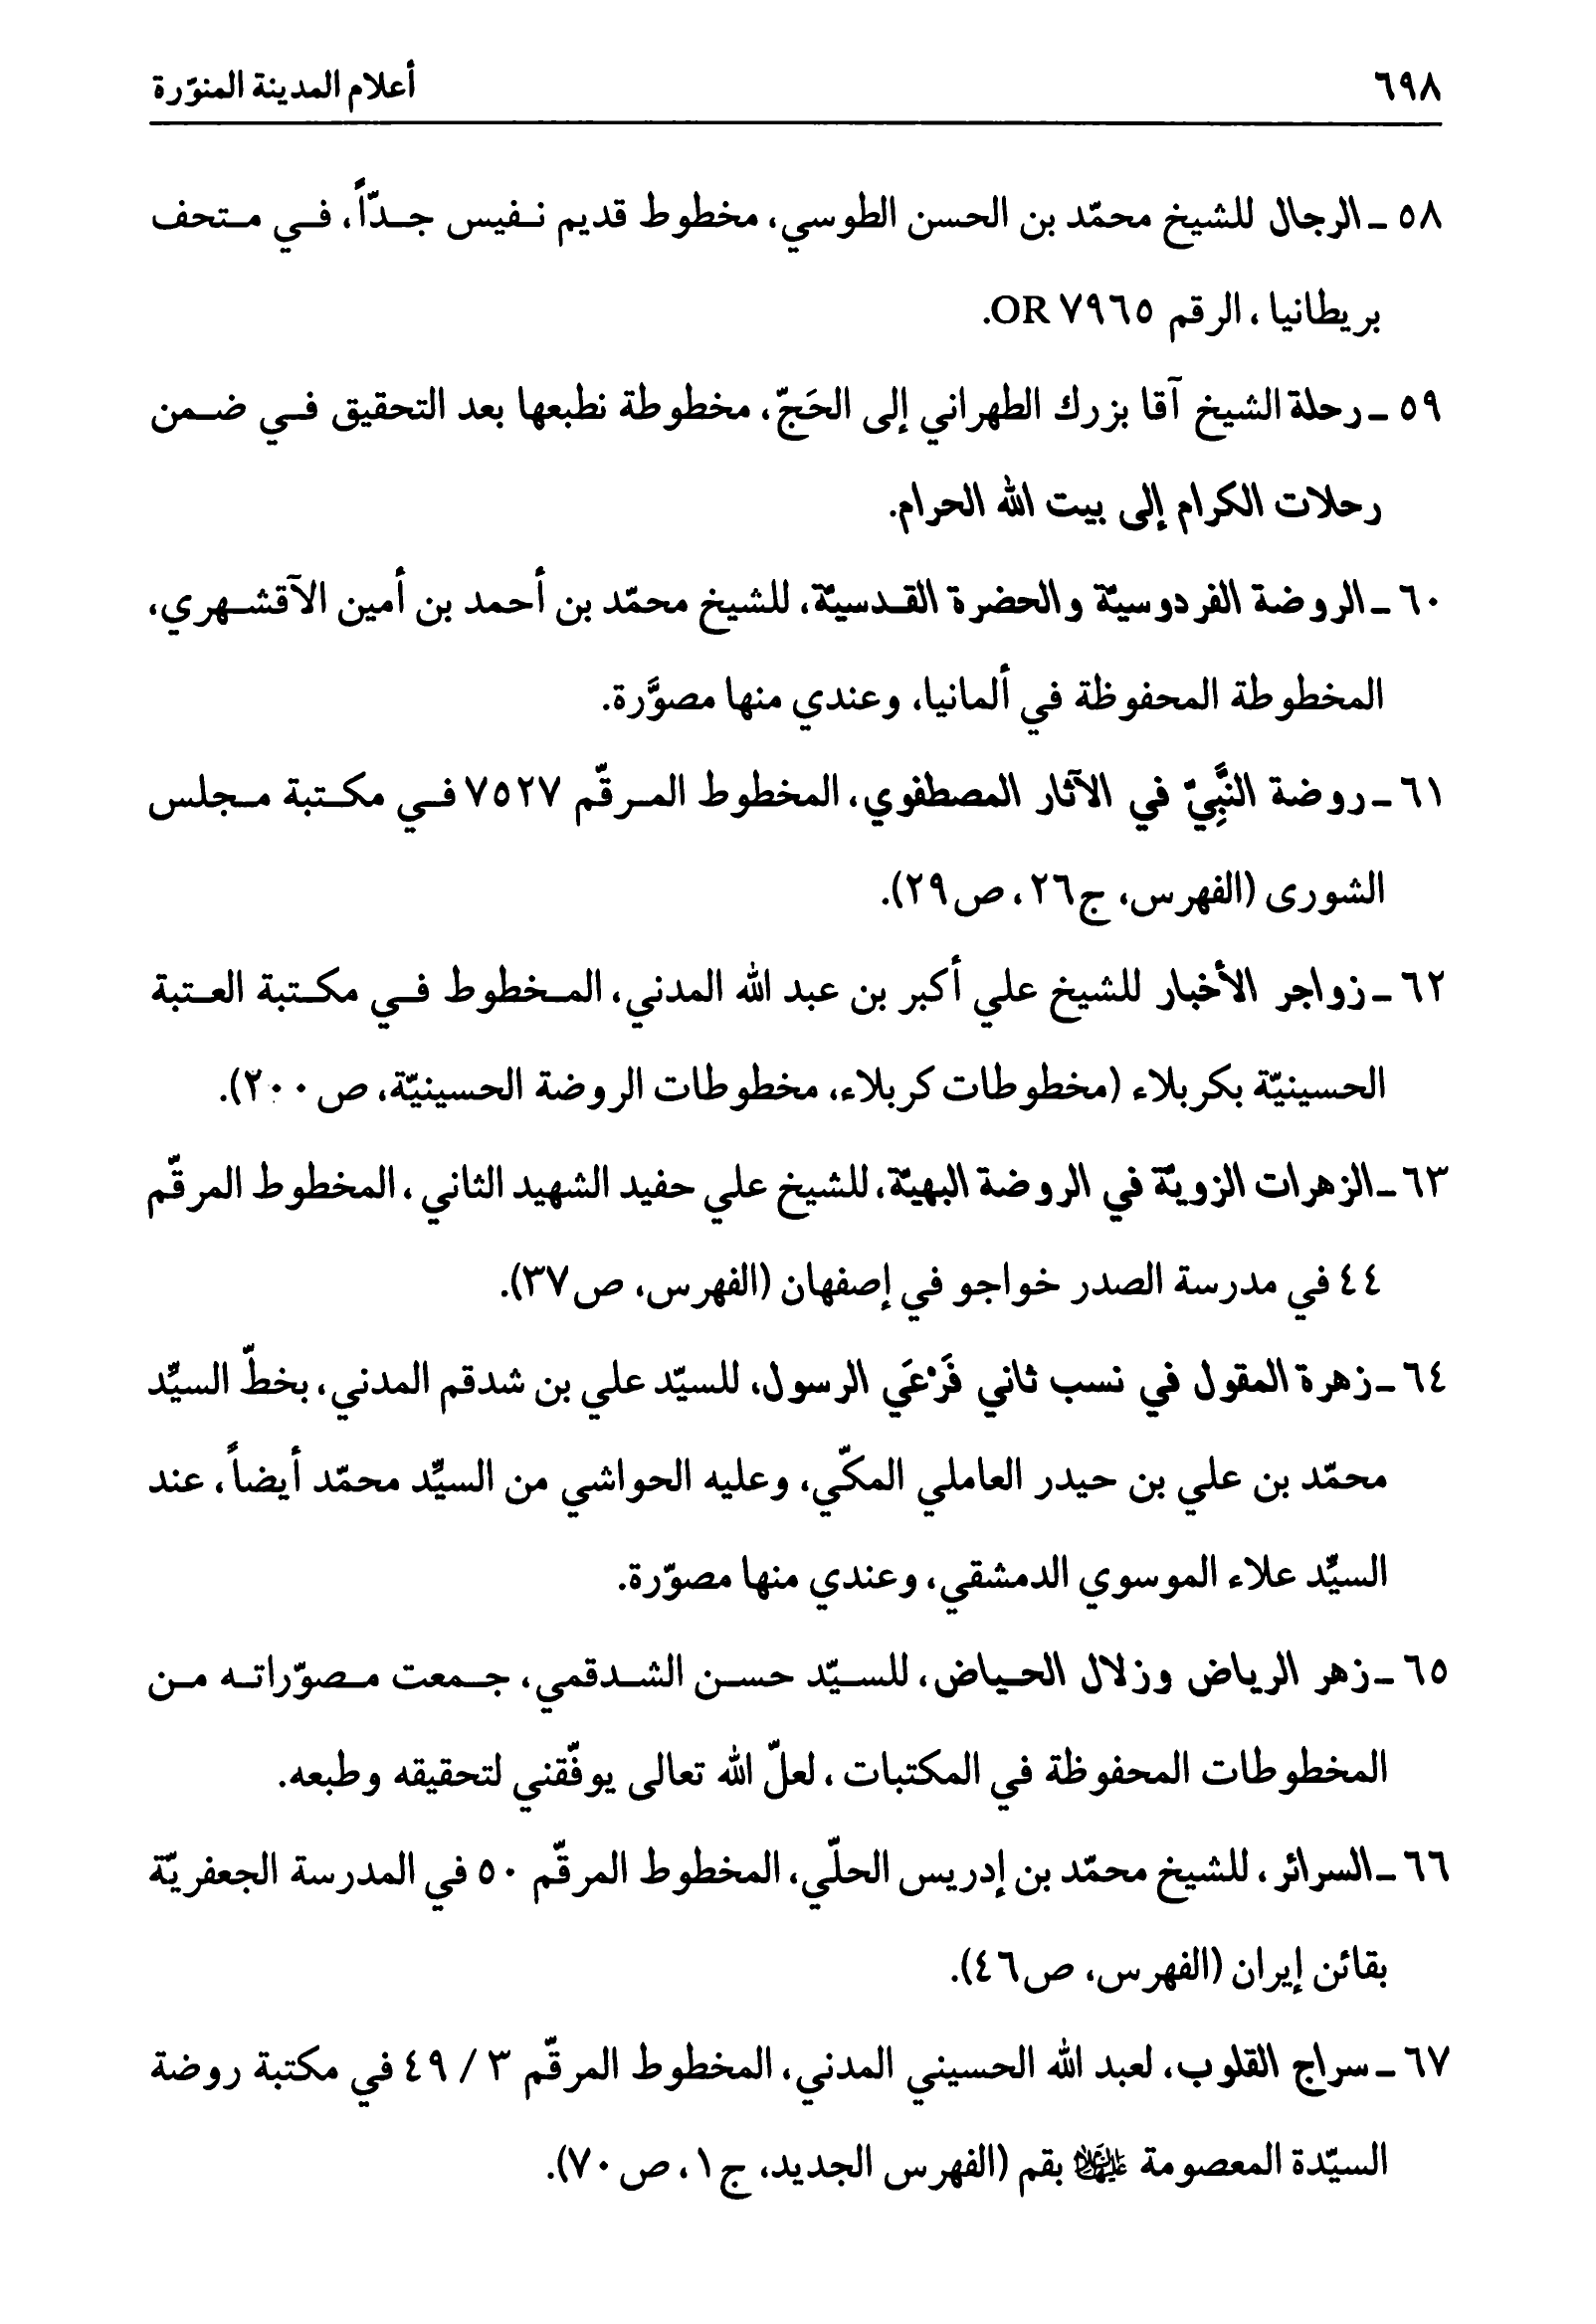 ٦٩٨ أعلام المدينة المنوّرة
٥٨ ـ الرجال للشيخ محمّد بن الحسن الطوسي، مخطوط قديم نـفيس جـدّاً، فـي مـتحف
بريطانيا، الرقم OR ٧٩٦٥.
٥٩ ـ رحلة الشيخ آقا بزرك الطهراني إلى الحَجّ، مخطوطة نطبعها بعد التحقيق فـي ضـمن
رحلات الكرام إلى بيت الله الحرام.
٦٠ ـ الروضة الفردوسيّة والحضرة القـدسيّة، للشيخ محمّد بن أحمد بن أمين الآقشـهري،
المخطوطة المحفوظة في ألمانيا، وعندي منها مصوَّرة.
٦١ ـ روضة النَّبِيّ في الآثار المصطفوي، المخطوط المـرقّم ٧٥٢٧ فـي مكـتبة مـجلس
الشورى (الفهرس، ج٢٦، ص٢٩).
٦٢ ـ زواجر الأخبار للشيخ علي أكبر بن عبد الله المدني، المـخطوط فـي مكـتبة العـتبة
الحسينيّة بكربلاء (مخطوطات كربلاء، مخطوطات الروضة الحسينيّة، ص٢٠٠).
٦٣ ـ الزهرات الزويّة في الروضة البهيّة، للشيخ علي حفيد الشهيد الثاني، المخطوط المرقّم
٤٤ في مدرسة الصدر خواجو في إصفهان (الفهرس، ص٣٧).
٦٤ ـ زهرة المقول في نسب ثاني فَرْعَي الرسول، للسيّد علي بن شدقم المدني، بخطّ السيِّد
محمّد بن علي بن حيدر العاملي المكّي، وعليه الحواشي من السيِّد محمّد أيضاً، عند
السيِّد علاء الموسوي الدمشقي، وعندي منها مصوّرة.
٦٥ ـ زهر الرياض وزلال الحـياض، للسـيّد حسـن الشـدقمي، جـمعت مـصوّراتـه مـن
المخطوطات المحفوظة في المكتبات، لعلّ الله تعالى يوفّقني لتحقيقه وطبعه.
٦٦ ـ السرائر، للشيخ محمّد بن إدريس الحلّي، المخطوط المرقّم ٥٠ في المدرسة الجعفريّة
بقائن إيران (الفهرس، ص٤٦).
٦٧ ـ سراج القلوب، لعبد الله الحسيني المدني، المخطوط المرقّم ٣ / ٤٩ في مكتبة روضة
السيّدة المعصومة عليها السلام بقم (الفهرس الجديد، ج١، ص٧٠).